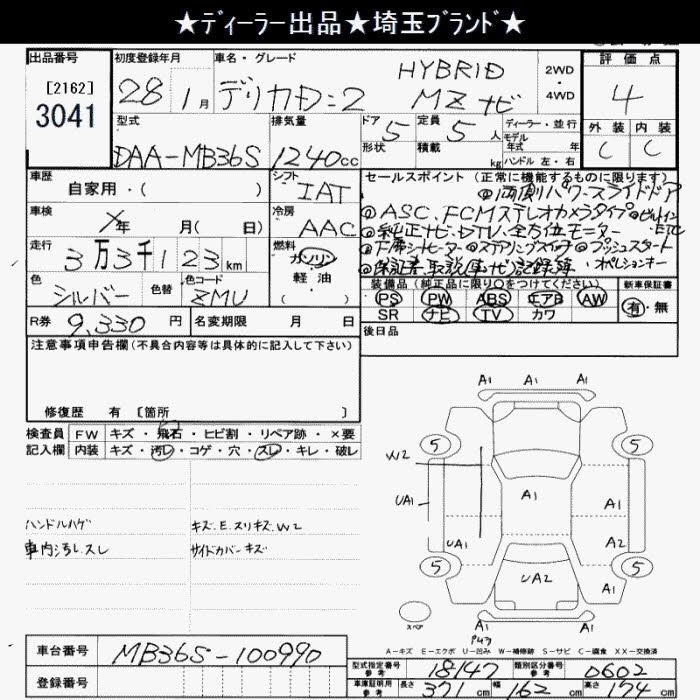 ★ディーラー出品★埼玉ブランド★
出品番号 初度登録年月 車名・グレード 評価点
[2162]
3041
28 1月 デリカD:2 HYBRID MZナビ 2WD・4WD 4
外装 内装
C C
型式 排気量 ドア 5 定員 5人 ディーラー・並行
モデル年式 年
DAA-MB36S 1240cc 形状 積載 kg ハンドル 左・右
車歴 シフト セールスポイント(正常に機能するものに限ります)
自家用・( ) IAT ◎両側パワースライドドア
車検 冷房 ◎ASC.FCMステレオカメラタイプ◎ビルトインETC
年 月( 日) AAC ◎純正ナビ.DTV.全方位モニター
走行 燃料 ◎下席シートヒーター◎ステアリングスイッチ◎プッシュスタート
3万3千123km ガソリン ◎保証書.取説.車.ナビ.記録簿・オペレションキー
軽油
色 色替 色コード 装備品(純正品に限り○をつけてください) 新車保証書
シルバー ZMU PS PW ABS エアB AW 有・無
R券 9,330円 名変期限 月 日 SR ナビ TV カワ
注意事項申告欄(不具合内容等は具体的に記入して下さい) 後日品
修復歴 有 [箇所 ]
検査員 FW キズ・飛石・ヒビ割・リペア跡・×要
記入欄 内装 キズ・汚レ・コゲ・穴・スレ・キレ・破レ
ハンドルハゲ キズ.E.スリキズ.W2
車内汚レ.スレ サイドカバーキズ
A1 A1 A1
5 5
W2
UA1 A1 A1
UA1 A2
5 5
UA2 A1
スペア
A1 A1
A-キズ E-エクボ U-凹み W-補修跡 S-サビ C-腐食 XX-交換済
車台番号 MB36S-100990
型式指定番号 参考 18147 類別区分番号 参考 0602
登録番号
車庫証明用 参考 長さ 371cm 幅 162cm 高さ 174cm